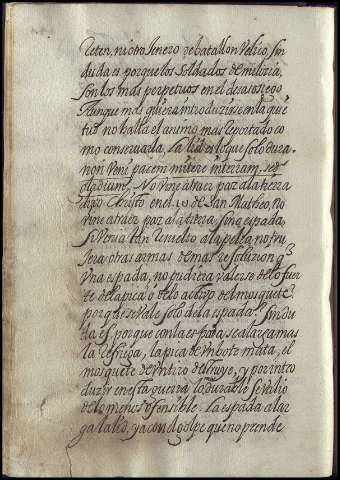 ni otro genero de batallon velico, sin
duda es porque los soldados de milizia,
son los mas perpetuos en el desasosiego
Aunque mas quiera introduzirse en la quie
tud no halla el animo mas reportado co
mo conservarla, la lid es lo que solo dura.
non veni pacem mitere in terram, sed
gladium, No vine a traer paz a la tierra
dijo Christo en el .10 de San Matheo, no
vine a traer paz a la tierra, sino espada,
si venia tan resuelto a la pelea no tru
jera otras armas de mas resoluzion q̃
vna espada, no pudiera valerse de lo fuer
te de la pica, o de lo activo del mosquete?
porque se vale solo de la espada? sin du
da es porque con la espada se alarga mas
la refriega, la pica de un bote mata, el
mosquete de un tiro destruye, y por intro
duzir en esta guerra lo durable se valio
de lo menos ofensible. la espada alar
ga la lid, ya con el golpe que no prende